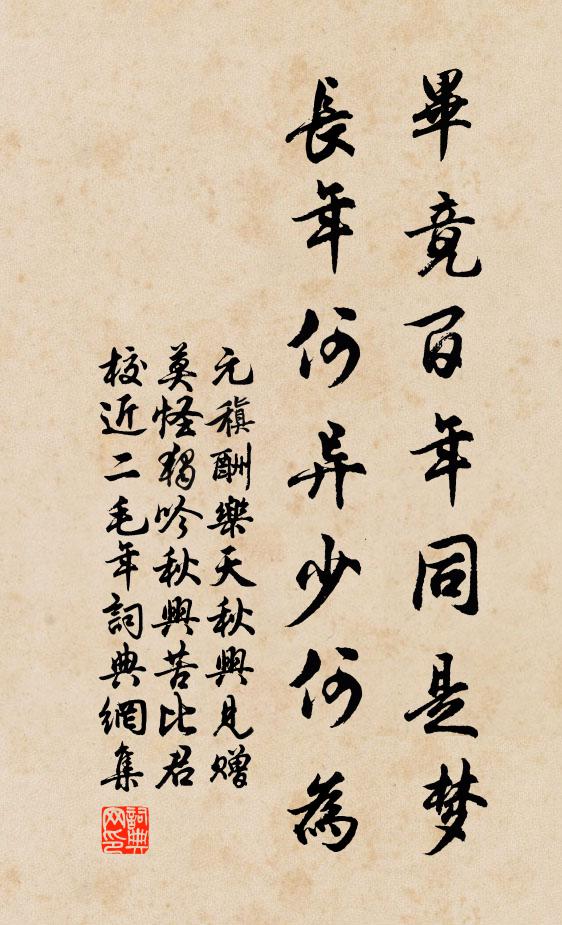 畢竟百年同是梦
長年何异少何為
元稹酬樂天秋興見贈
莫怪獨吟秋興苦比君
校近二毛年詞典網集
詞典网印